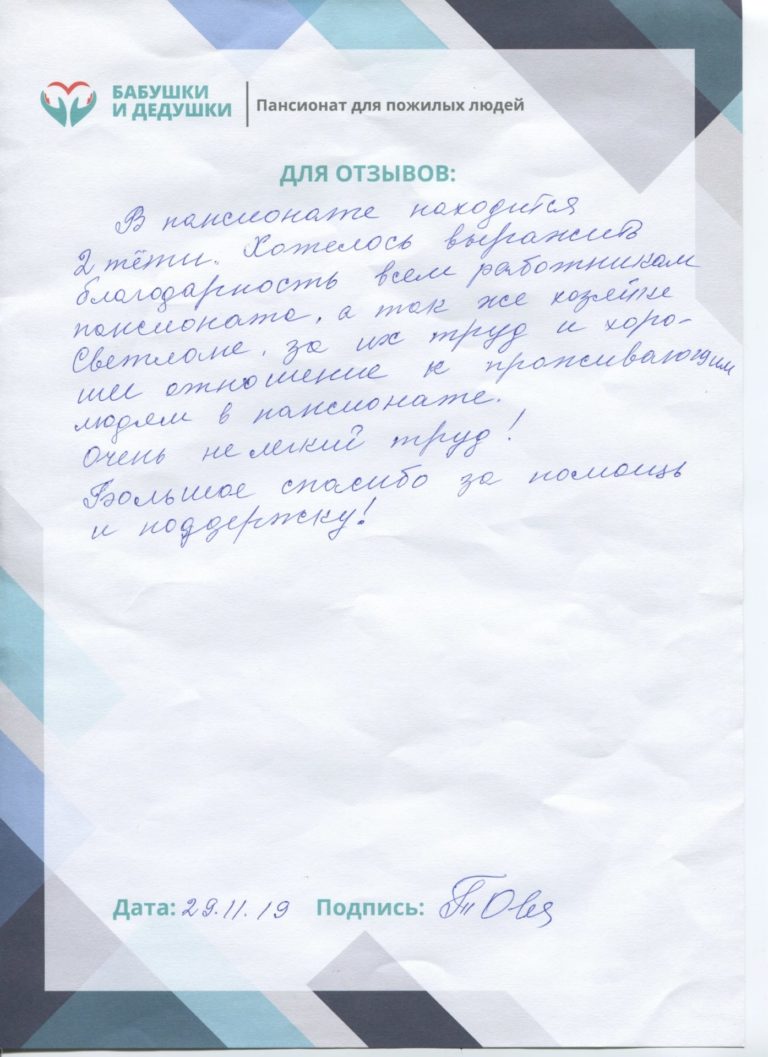 БАБУШКИ
И ДЕДУШКИ
Пансионат для пожилых людей
ДЛЯ ОТЗЫВОВ:
В пансионате находится
2 тёти. Хотелось выражить
благодарность всем работникам
пансионата, а так же хозяйке
Светлане, за их труд и хоро-
шее отношение к проживающим
людям в пансионате.
Очень не легкий труд!
Большое спасибо за помощь
и поддержку!
Дата: 29.11.19 Подпись: